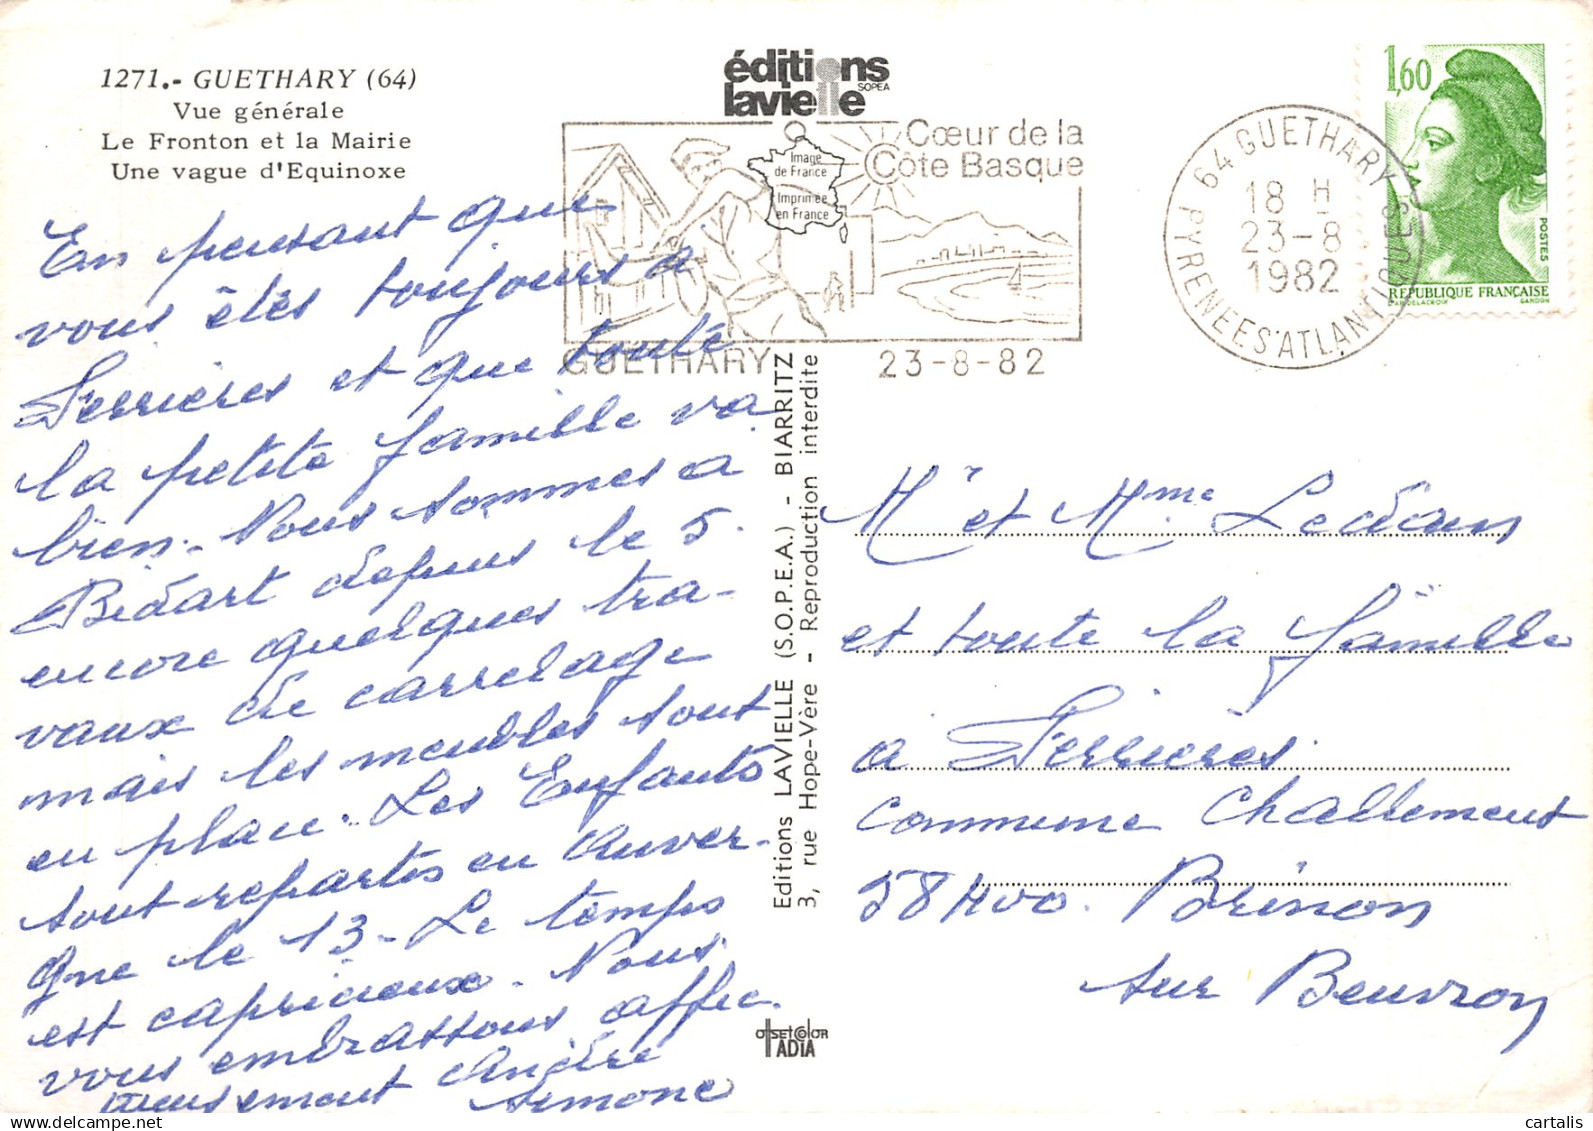 1271.- GUETHARY (64)
Vue générale
Le Fronton et la Mairie
Une vague d'Equinoxe
éditions
lavielle
SOPEA
Image
de France
Imprimée
en France
Cœur de la
Côte Basque
GUETHARY 23-8-82
64 GUETHARY
18 H
23-8
1982
PYRENEES ATLANTIQUES
1,60
POSTES
REPUBLIQUE FRANÇAISE
D'AP. DELACROIX GANDON
En pensant que
vous êtes toujours a
Ferrieres et que toute
la petite famille va
bien. Nous sommes a
Bidart depuis le 5.
encore quelques tra-
vaux de carrelage
mais les meubles sont
en place. Les Enfants
sont repartis en Auver-
gne le 13 - Le temps
est capricieux. Nous
vous embrassons affec.
tueusement Andrée
Simone
Editions LAVIELLE (S.O.P.E.A.) - BIARRITZ
3, rue Hope-Vère - Reproduction interdite
OFFSETCOLOR
IADIA
Mr et Mme Ledéan
et toute la famille
a Ferrieres.
Commune Challement
58400. Brinon
sur Beuvron
cartalis
delcampe.net